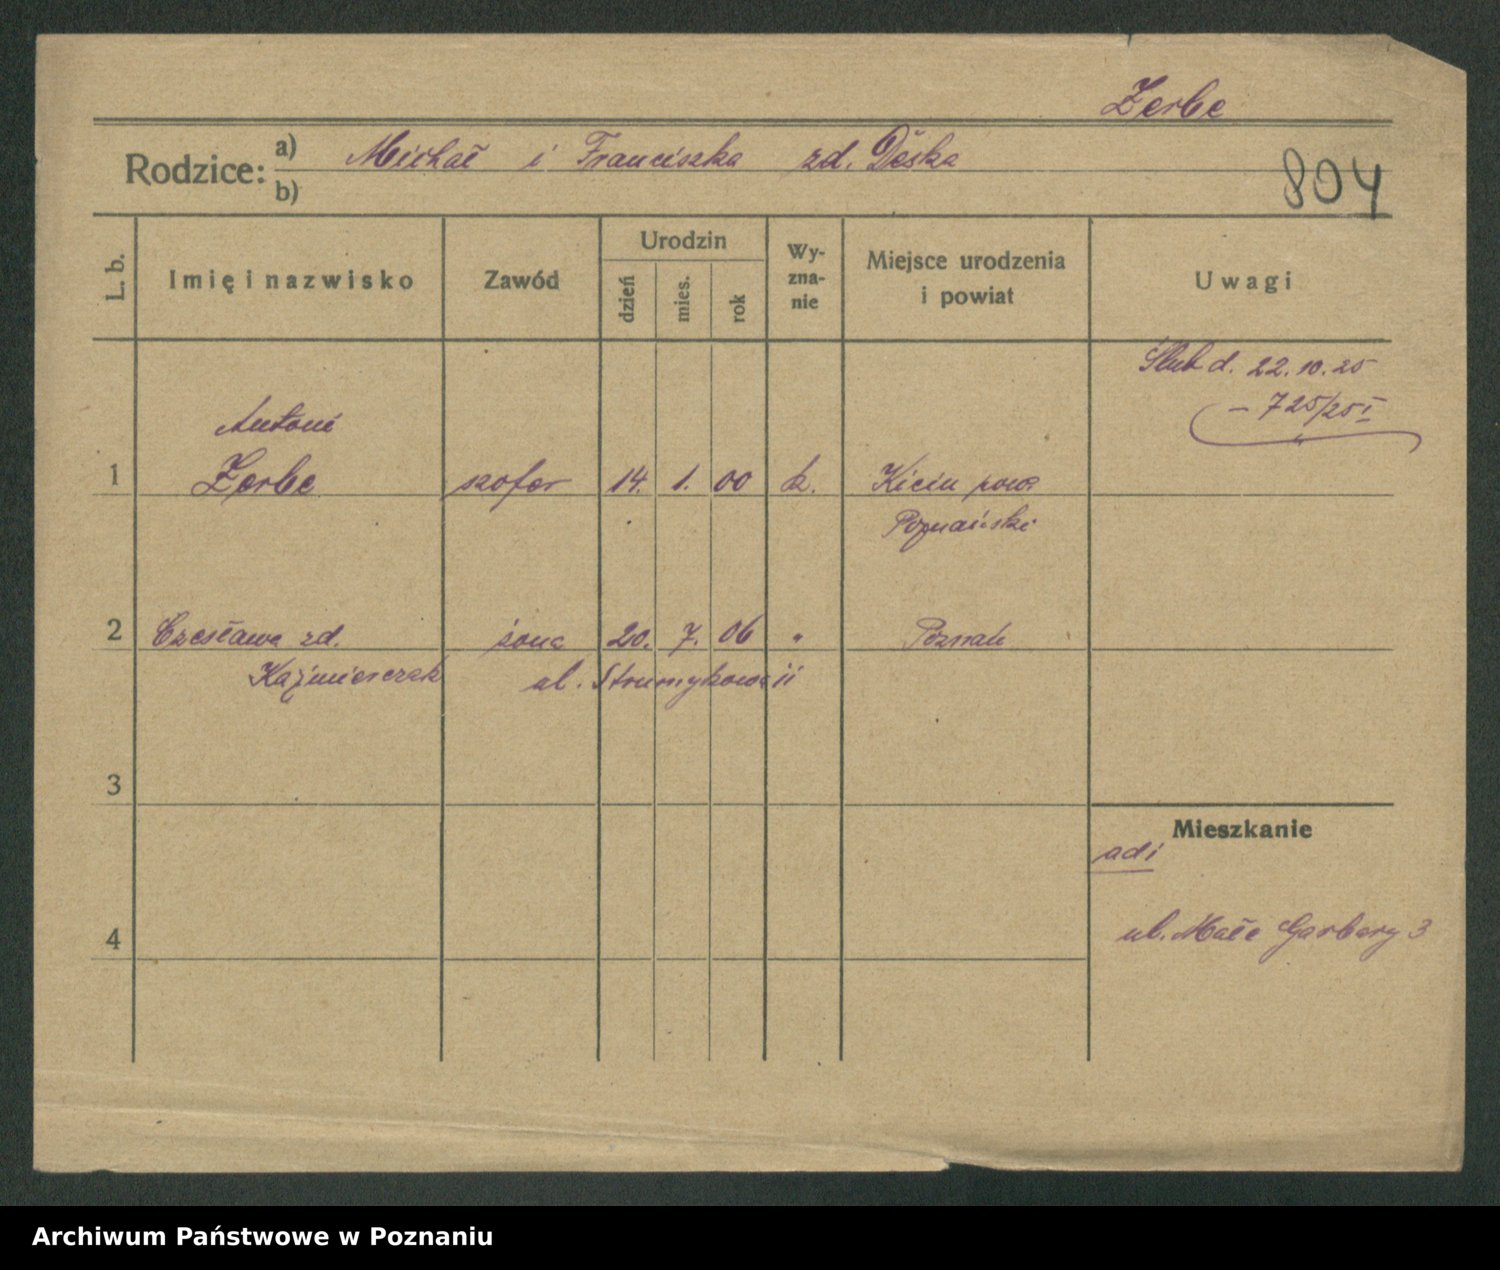 Zerbe
Rodzice: a) Michał i Franciszka zd. Deska
b)
804
L. b.
Imię i nazwisko
Zawód
Urodzin
dzień
mies.
rok
Wy-
zna-
nie
Miejsce urodzenia
i powiat
Uwagi
Ślub d. 22.10.25
– 725/25 I
Antoni
1 Zerbe szofer 14. 1. 00 k. Kicin pow
Poznański
2 Czesława zd. żona 20. 7. 06 " Poznań
Kaźmierczak ul. Strumykowa 11
3
Mieszkanie
adi
4 ul. Małe Garbary 3
Archiwum Państwowe w Poznaniu